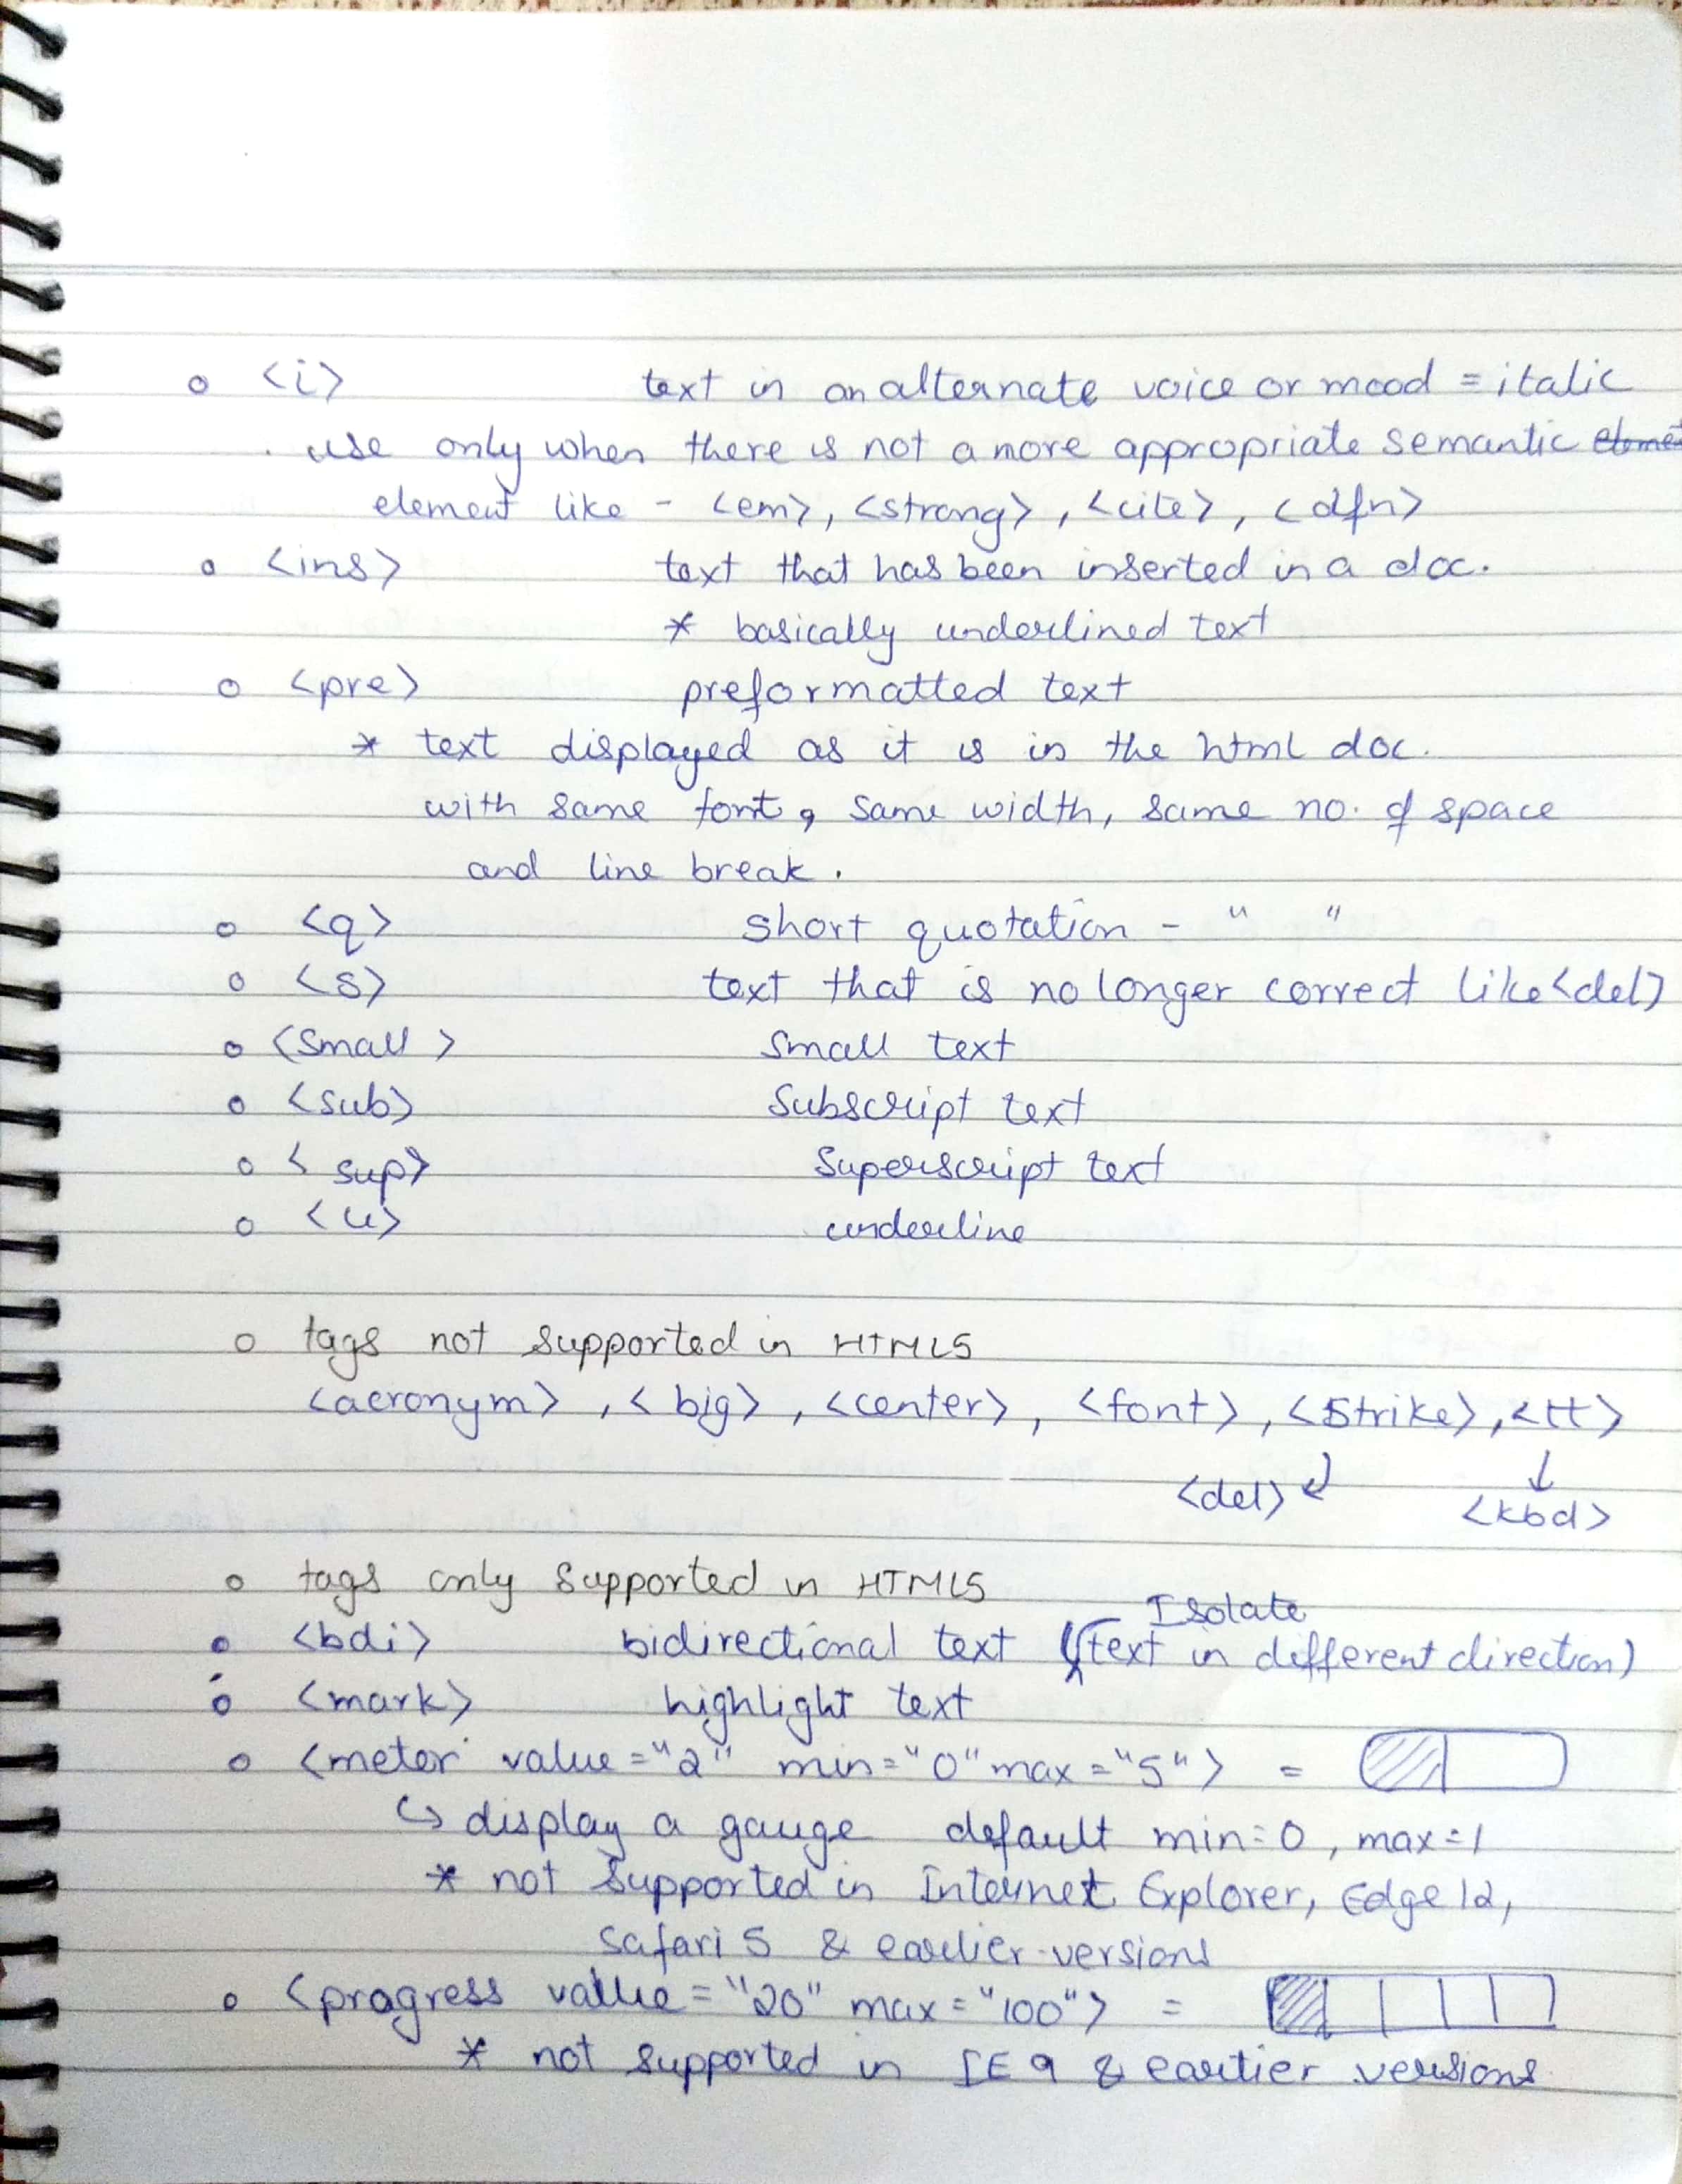 o <i> text in an alternate voice or mood = italic
. use only when there is not a more appropriate semantic
element like - <em>, <strong>, <cite>, <dfn>
o <ins> text that has been inserted in a doc.
* basically underlined text
o <pre> preformatted text
* text displayed as it is in the html doc.
with same font, same width, same no. of space
and line break.
o <q> short quotation - " "
o <s> text that is no longer correct like <del>
o <small> small text
o <sub> Subscript text
o <sup> Superscript text
o <u> underline
o tags not supported in HTML5
<acronym>, <big>, <center>, <font>, <strike>, <tt>
<del> ↲ ↓
<kbd>
o tags only supported in HTML5
Isolate
o <bdi> bidirectional text (text in different direction)
o <mark> highlight text
o <meter value="2" min="0" max="5"> =
↪ display a gauge default min=0, max=1
* not supported in Internet Explorer, Edge 12,
Safari 5 & earlier versions
o <progress value="20" max="100"> =
* not supported in IE 9 & eartier versions